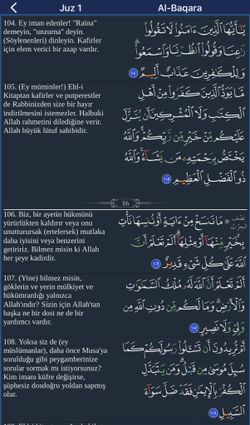 Juz 1 Al-Baqara
104. Ey iman edenler! "Raina"
demeyin, "unzurna" deyin.
(Söylenenleri) dinleyin. Kafirler
için elem verici bir azap vardır.
يَٰٓأَيُّهَا ٱلَّذِينَ ءَامَنُوا۟ لَا تَقُولُوا۟
رَٰعِنَا وَقُولُوا۟ ٱنظُرْنَا وَٱسْمَعُوا۟ ۗ
وَلِلْكَٰفِرِينَ عَذَابٌ أَلِيمٌ ١٠٤
105. (Ey müminler!) Ehl-i
Kitaptan kafirler ve putperestler
de Rabbinizden size bir hayır
indirilmesini istemezler. Halbuki
Allah rahmetini dilediğine verir.
Allah büyük lütuf sahibidir.
مَّا يَوَدُّ ٱلَّذِينَ كَفَرُوا۟ مِنْ أَهْلِ
ٱلْكِتَٰبِ وَلَا ٱلْمُشْرِكِينَ أَن يُنَزَّلَ
عَلَيْكُم مِّنْ خَيْرٍ مِّن رَّبِّكُمْ ۗ وَٱللَّهُ
يَخْتَصُّ بِرَحْمَتِهِۦ مَن يَشَآءُ ۚ وَٱللَّهُ
ذُو ٱلْفَضْلِ ٱلْعَظِيمِ ١٠٥
16
106. Biz, bir ayetin hükmünü
yürürlükten kaldırır veya onu
unutturursak (ertelersek) mutlaka
daha iyisini veya benzerini
getiririz. Bilmez misin ki Allah
her şeye kadirdir.
مَا نَنسَخْ مِنْ ءَايَةٍ أَوْ نُنسِهَا نَأْتِ
بِخَيْرٍ مِّنْهَآ أَوْ مِثْلِهَآ ۗ أَلَمْ تَعْلَمْ أَنَّ
ٱللَّهَ عَلَىٰ كُلِّ شَىْءٍ قَدِيرٌ ١٠٦
107. (Yine) bilmez misin,
göklerin ve yerin mülkiyet ve
hükümranlığı yalnızca
Allah'ındır? Sizin için Allah'tan
başka ne bir dost ne de bir
yardımcı vardır.
أَلَمْ تَعْلَمْ أَنَّ ٱللَّهَ لَهُۥ مُلْكُ ٱلسَّمَٰوَٰتِ
وَٱلْأَرْضِ ۗ وَمَا لَكُم مِّن دُونِ ٱللَّهِ مِن
وَلِىٍّ وَلَا نَصِيرٍ ١٠٧
108. Yoksa siz de (ey
müslümanlar), daha önce Musa'ya
sorulduğu gibi peygamberinize
sorular sormak mı istiyorsunuz?
Kim imanı küfre değişirse,
şüphesiz dosdoğru yoldan sapmış
olur.
أَمْ تُرِيدُونَ أَن تَسْـَٔلُوا۟ رَسُولَكُمْ كَمَا
سُئِلَ مُوسَىٰ مِن قَبْلُ ۗ وَمَن يَتَبَدَّلِ
ٱلْكُفْرَ بِٱلْإِيمَٰنِ فَقَدْ ضَلَّ سَوَآءَ
ٱلسَّبِيلِ ١٠٨